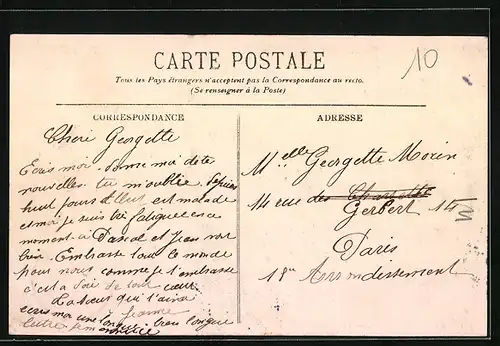 10
CARTE POSTALE
Tous les Pays étrangers n'acceptent pas la Correspondance au recto.
(Se renseigner à la Poste)
CORRESPONDANCE
Cheri Georgette
Ecris moi. donne moi de te
nouvelles. tu m'oublie. Depuis
huit jours est malade
et moi je suis bien fatiguée en ce
moment. Pascal et Jean vont
bien. Embrasse tout le monde
pour nous comme je t'embrasse
de tout cœur.
Ta sœur qui t'aime
Jeanne
ecris moi une longue bien longue
lettre
ADRESSE
Melle Georgette Morin
14 rue des
Gerbert 14
Paris
15em Arrondissement